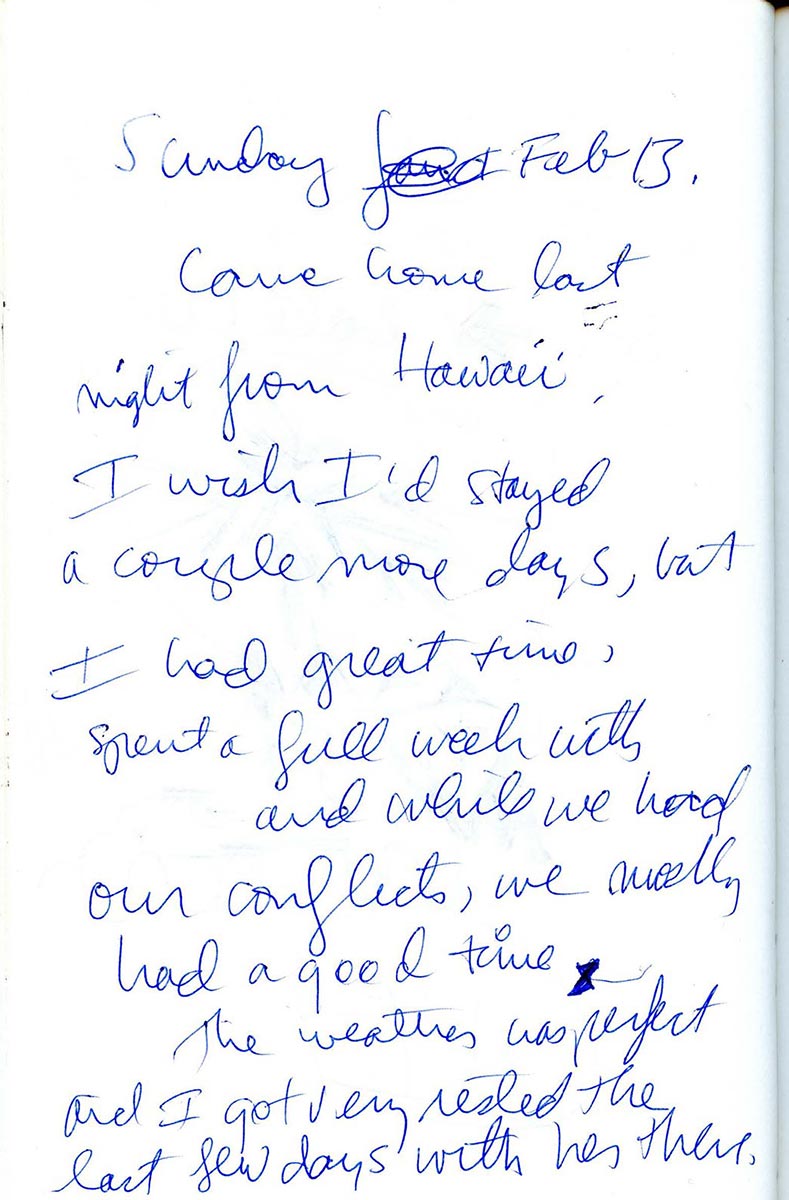 Sunday Feb 13.
Came home last
night from Hawaii.
I wish I'd stayed
a couple more days, but
I had great time,
spent a full week with
and while we had
our conflicts, we mostly
had a good time
The weather was perfect
and I got very rested the
last few days with her there.